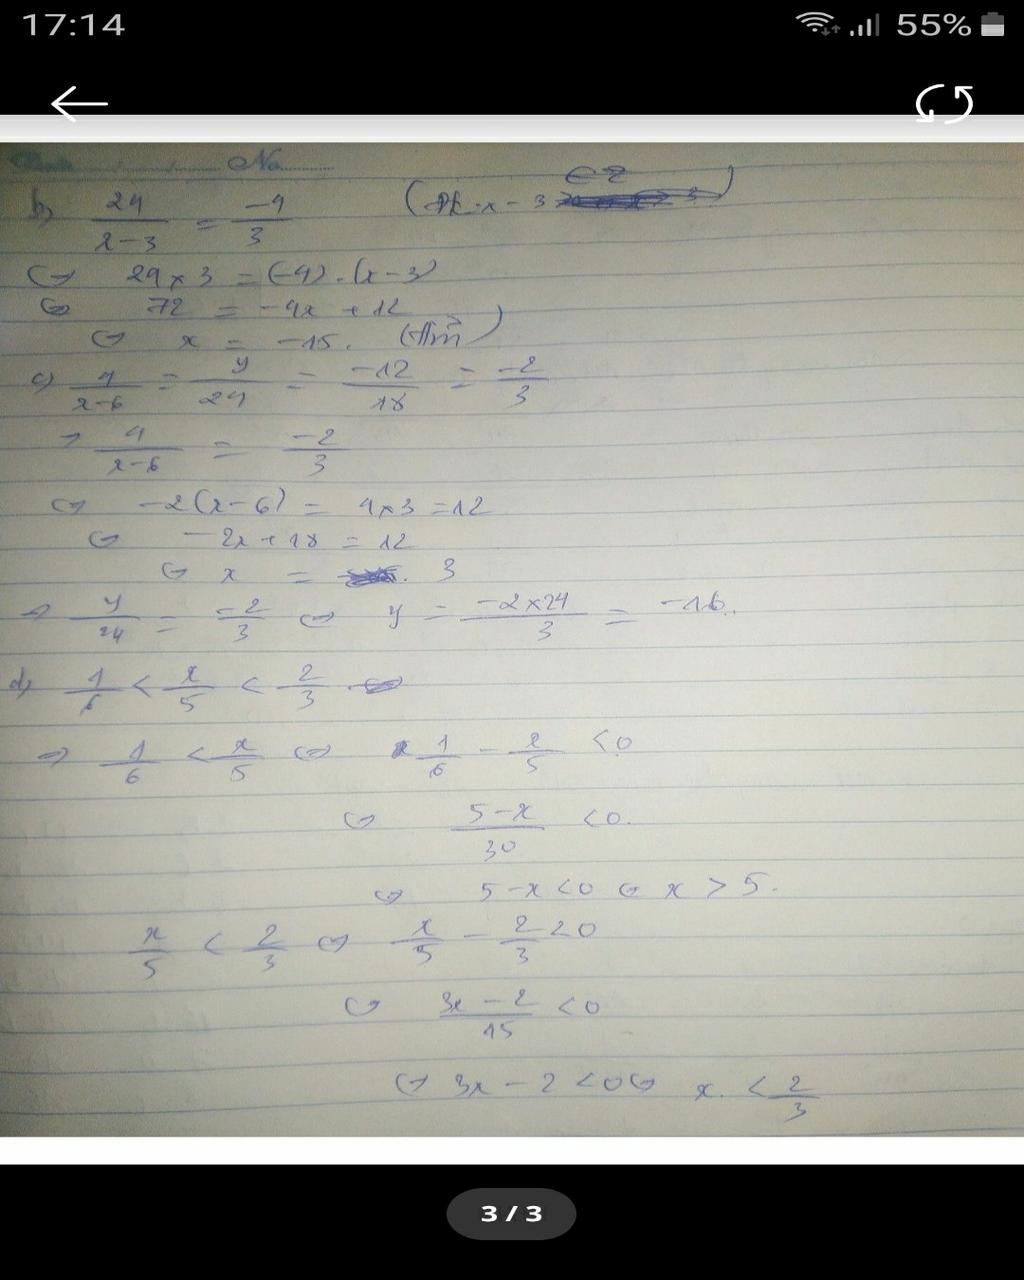 17:14 55%
No
b) 24/(x-3) = -4/3 (đk: x-3 ∈ Z)
<=> 24 x 3 = (-4).(x-3)
<=> 72 = -4x + 12
<=> x = -15. (tm)
c) 4/(x-6) = y/24 = -12/18 = -2/3
=> 4/(x-6) = -2/3
<=> -2(x-6) = 4x3 = 12
<=> -2x + 18 = 12
<=> x = 3
=> y/24 = -2/3 <=> y = (-2x24)/3 = -16.
d) 1/6 < x/5 < 2/3
=> 1/6 < x/5 <=> 1/6 - x/5 < 0
<=> (5-x)/30 < 0.
<=> 5-x < 0 <=> x > 5.
x/5 < 2/3 <=> x/5 - 2/3 < 0
<=> (3x-2)/15 < 0
<=> 3x - 2 < 0 <=> x < 2/3
3 / 3